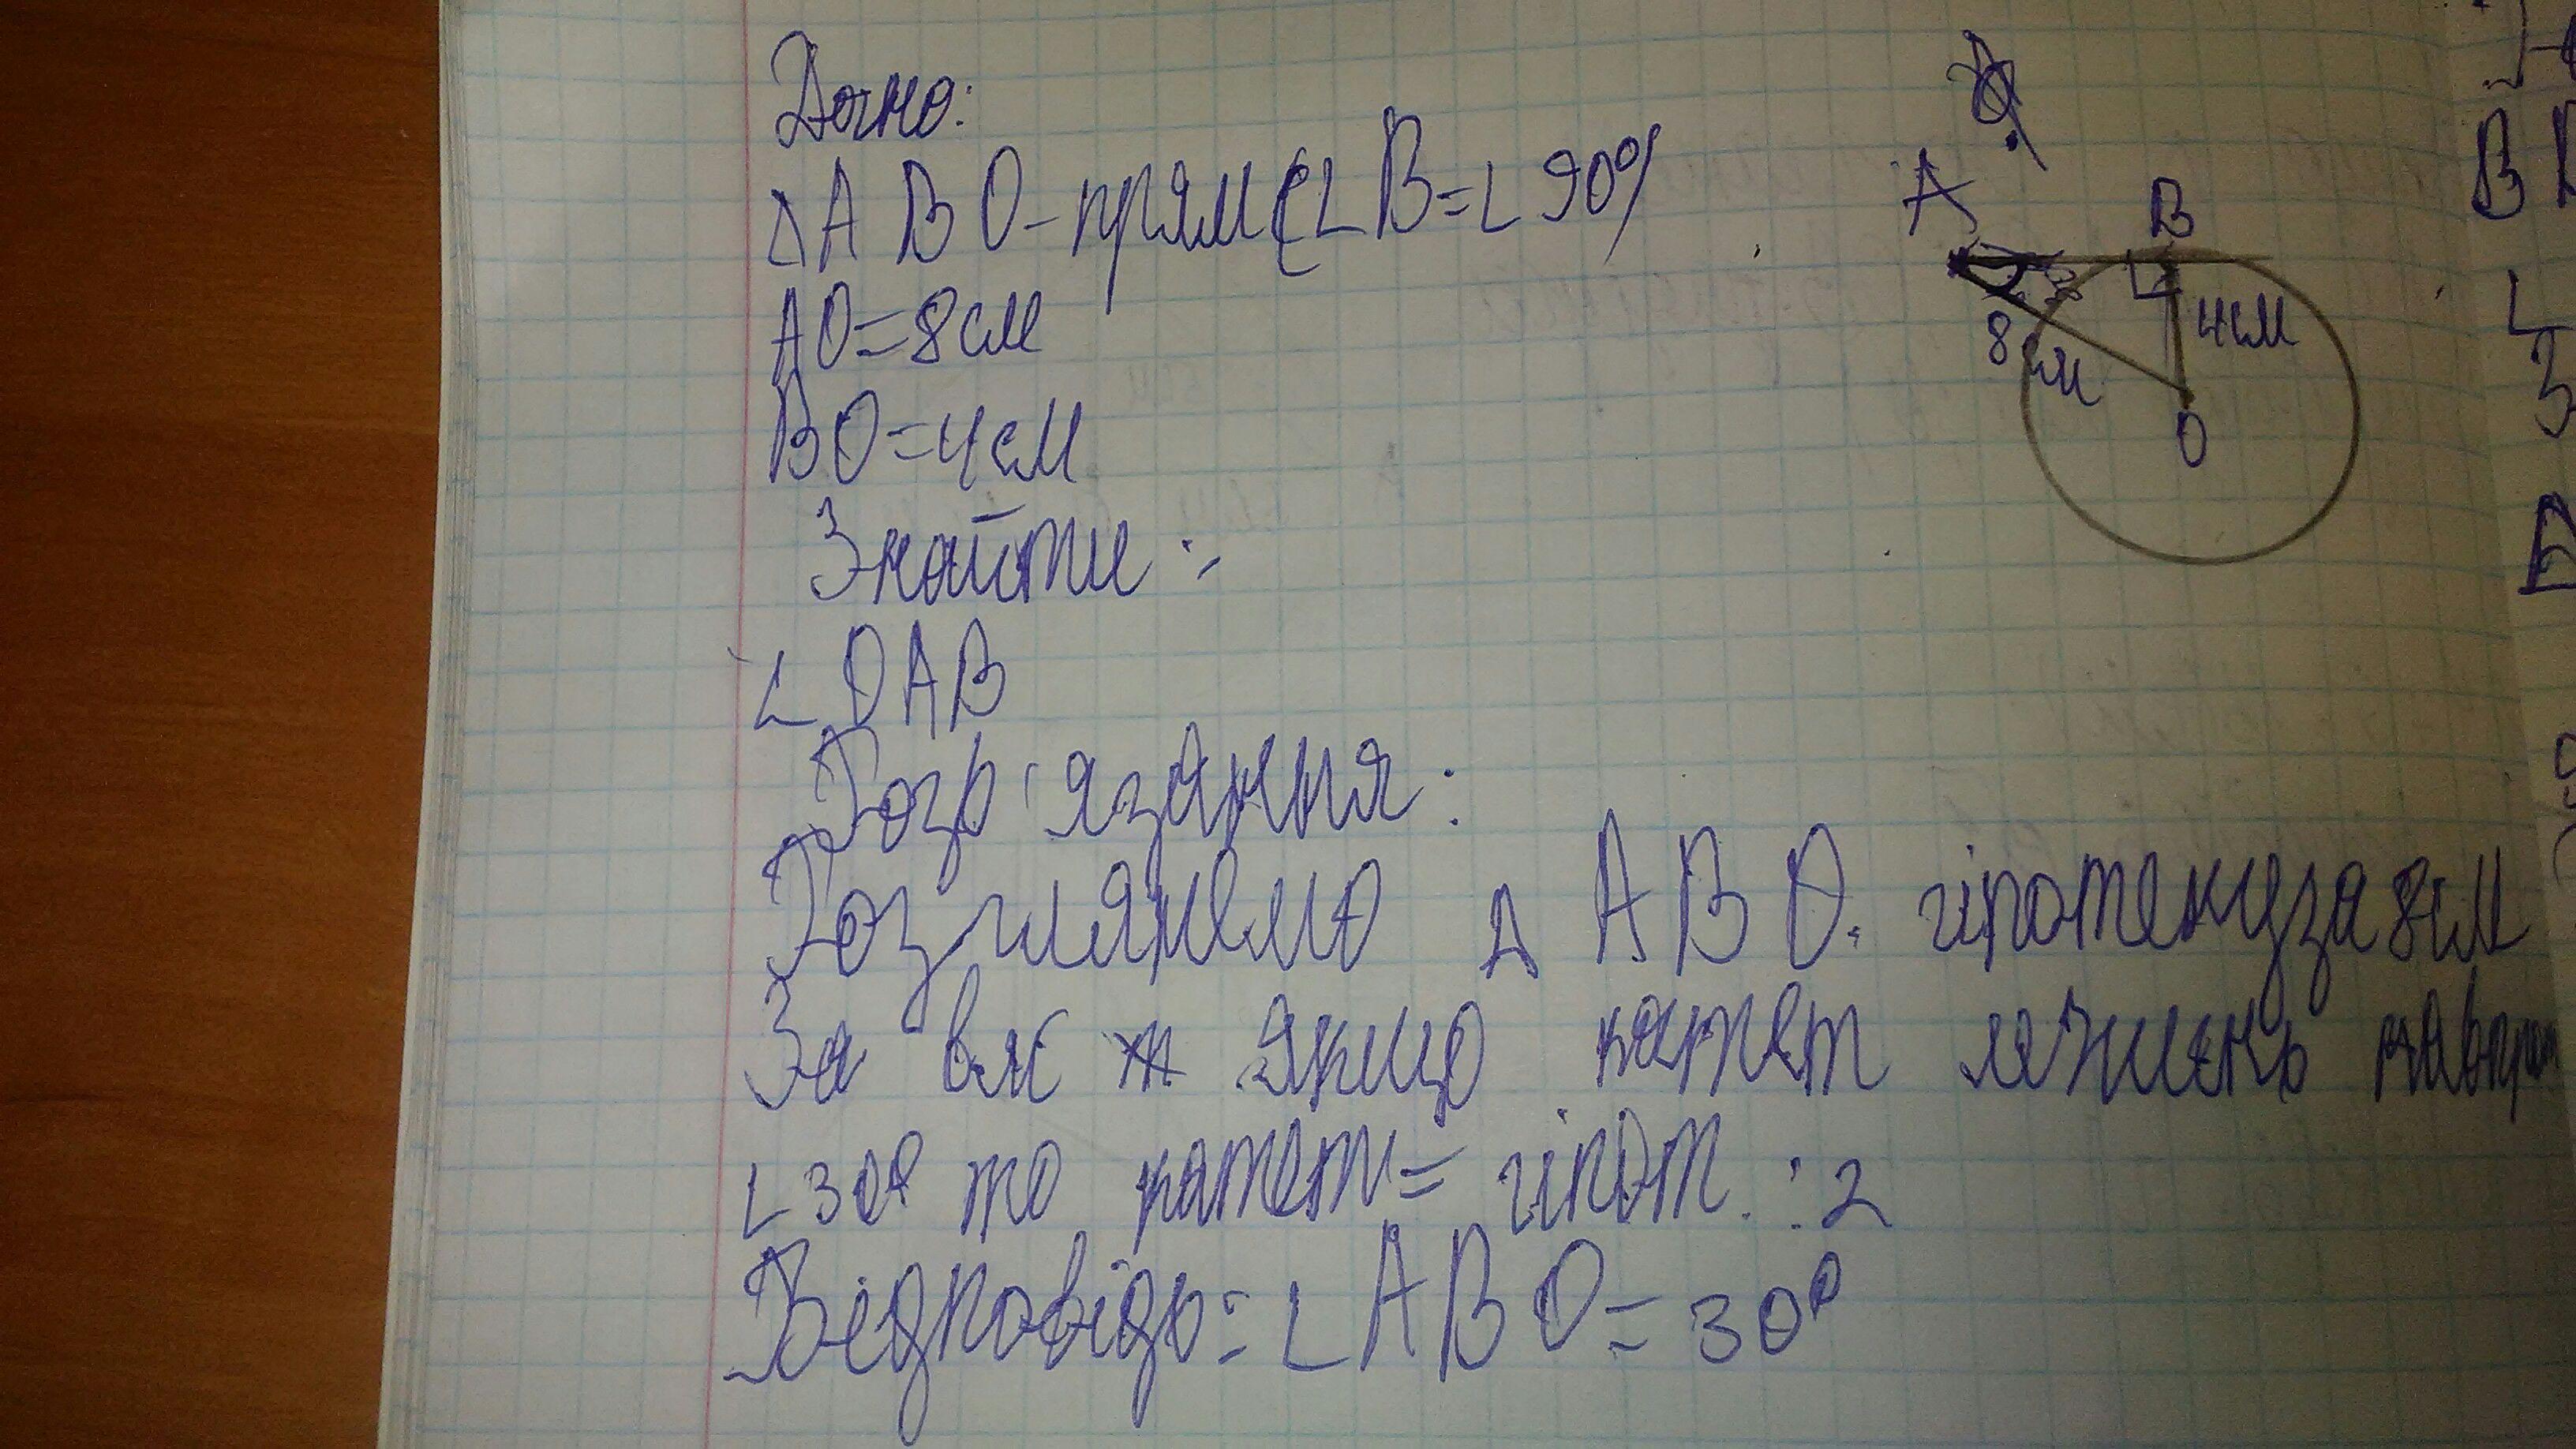 Дано:
△ABO-прям(∟B=∟90°)
AO=8см
BO=4см
Знайти:
∟OAB
Розв'язання:
Розглянемо △ABO. гіпотенуза 8см
За вл якщо катет лежить навпроти
∟30° то катет=гіпот.:2
Відповідь:∟ABO=30°
A
B
8см
4см
O
B
∟
3